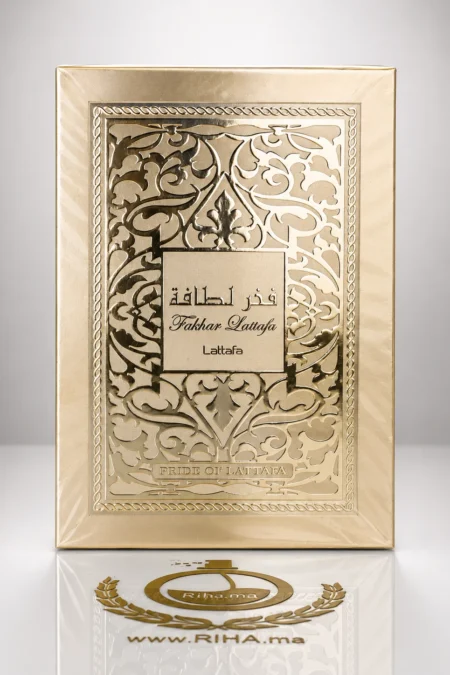 فخر لطافة
Fakhar Lattafa
Lattafa
PRIDE OF LATTAFA
Riha.ma
www.RIHA.ma